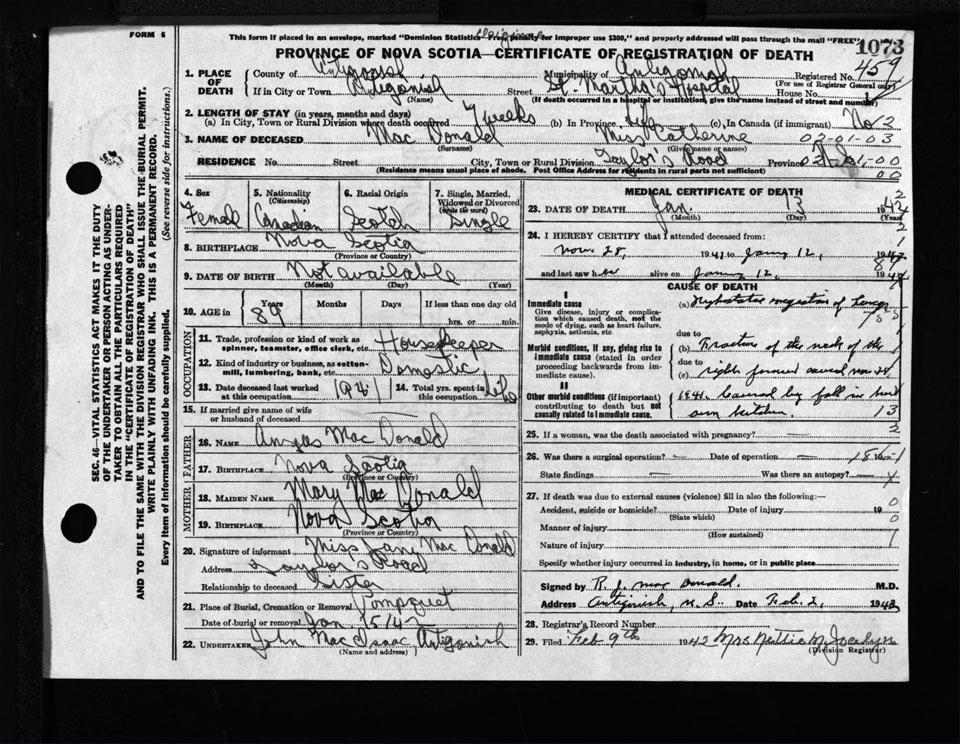 FORM 6
This form if placed in an envelope, marked "Dominion Statistics—Free, penalty for improper use $300," and properly addressed will pass through the mail "FREE"
PROVINCE OF NOVA SCOTIA—CERTIFICATE OF REGISTRATION OF DEATH
1073
1. PLACE OF DEATH
County of Antigonish Municipality of Antigonish Registered No. 459
(For use of Registrar General only)
If in City or Town Antigonish Street St. Martha's Hospital House No.
(Name) (If death occurred in a hospital or institution, give the name instead of street and number)
2. LENGTH OF STAY (in years, months and days)
(a) In City, Town or Rural Division where death occurred 7 weeks (b) In Province life (c), In Canada (if immigrant)
3. NAME OF DECEASED Mac Donald Miss Katherine 02-01-03
(Surname) (Given name or name)
RESIDENCE No. Street City, Town or Rural Division Taylor's Road Province N.S.
(Residence means usual place of abode. Post Office Address for residents in rural parts not sufficient)
4. Sex Female
5. Nationality (Citizenship) Canadian
6. Racial Origin Scotch
7. Single, Married, Widowed or Divorced (write the word) Single
8. BIRTHPLACE Nova Scotia
(Province or Country)
9. DATE OF BIRTH Not available
(Month) (Day) (Year)
10. AGE in Years 89 Months Days If less than one day old hrs. or min.
OCCUPATION
11. Trade, profession or kind of work as spinner, teamster, office clerk, etc. Housekeeper
12. Kind of industry or business, as cotton-mill, lumbering, bank, etc. Domestic
13. Date deceased last worked at this occupation 1941 14. Total yrs. spent in this occupation life
15. If married give name of wife or husband of deceased
FATHER
16. NAME Angus Mac Donald
17. BIRTHPLACE Nova Scotia
(Province or Country)
MOTHER
18. MAIDEN NAME Mary Mac Donald
19. BIRTHPLACE Nova Scotia
(Province or Country)
20. Signature of informant Miss Jany Mac Donald
Address Taylor's Road
Relationship to deceased Sister
21. Place of Burial, Cremation or Removal Pomquet
Date of burial or removal Jan 15/42
22. UNDERTAKER John Mac Isaac, Antigonish
(Name and address)
MEDICAL CERTIFICATE OF DEATH
23. DATE OF DEATH Jan. 13 1942
(Month) (Day) (Year)
24. I HEREBY CERTIFY that I attended deceased from:
Nov. 28, 1941 to Jany 12, 1942
and last saw her alive on Jany 12, 1942
CAUSE OF DEATH
I
Immediate cause
Give disease, injury or complication which caused death, not the mode of dying, such as heart failure, asphyxia, asthenia, etc.
(a) Hypostatic congestion of lungs
due to
Morbid conditions, if any, giving rise to immediate cause (stated in order proceeding backwards from immediate cause).
(b) Fracture of the neck of the
due to
(c) right femur caused Nov. 28
II
Other morbid conditions (if important) contributing to death but not causally related to immediate cause.
1941. Caused by fall in her
own kitchen. 13
25. If a woman, was the death associated with pregnancy?
26. Was there a surgical operation? Date of operation
State findings Was there an autopsy?
27. If death was due to external causes (violence) fill in also the following:
Accident, suicide or homicide? Date of injury 19
(State which)
Manner of injury
(How sustained)
Nature of injury
Specify whether injury occurred in industry, in home, or in public place
Signed by R. J. Mac Donald. M.D.
Address Antigonish, N.S. Date Feb. 2, 1942
28. Registrar's Record Number
29. Filed Feb 9th 1942 Mrs Nettie M. Jocelyn
(Division Registrar)
SEC. 46—VITAL STATISTICS ACT MAKES IT THE DUTY OF THE UNDERTAKER OR PERSON ACTING AS UNDERTAKER TO OBTAIN ALL THE PARTICULARS REQUIRED IN THE "CERTIFICATE OF REGISTRATION OF DEATH" AND TO FILE THE SAME WITH THE DIVISION REGISTRAR WHO SHALL ISSUE THE BURIAL PERMIT.
WRITE PLAINLY WITH UNFADING INK. THIS IS A PERMANENT RECORD.
Every item of information should be carefully supplied. (See reverse side for instructions.)